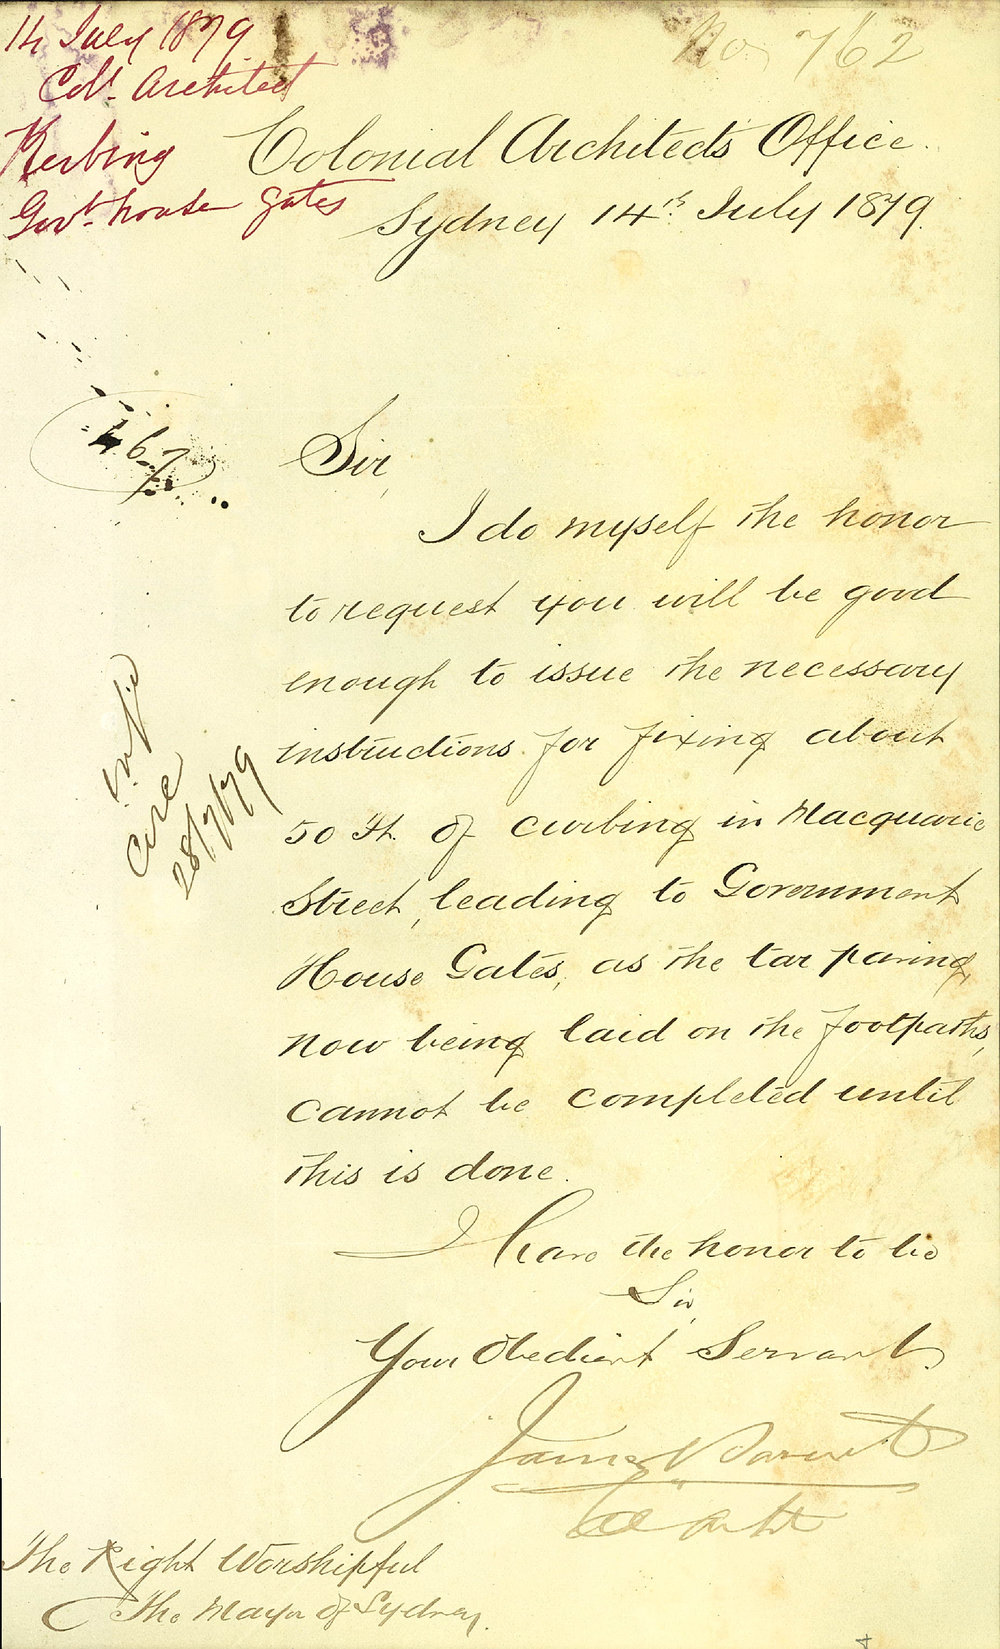 14 July 1879
Col. Architect
Kerbing
Govt. house gates
No 762
Colonial Architects Office.
Sydney 14th July 1879.
467
Sir,
I do myself the honor
to request you will be good
enough to issue the necessary
instructions for fixing about
50 Ft. of curbing in Macquarie
Street, leading to Government
House Gates, as the tar paving
now being laid on the footpaths,
cannot be completed until
this is done.
28/7/79
I have the honor to be
Sir,
Your Obedient Servant,
James Barnet
Col Archt
The Right Worshipful
The Mayor of Sydney.
4